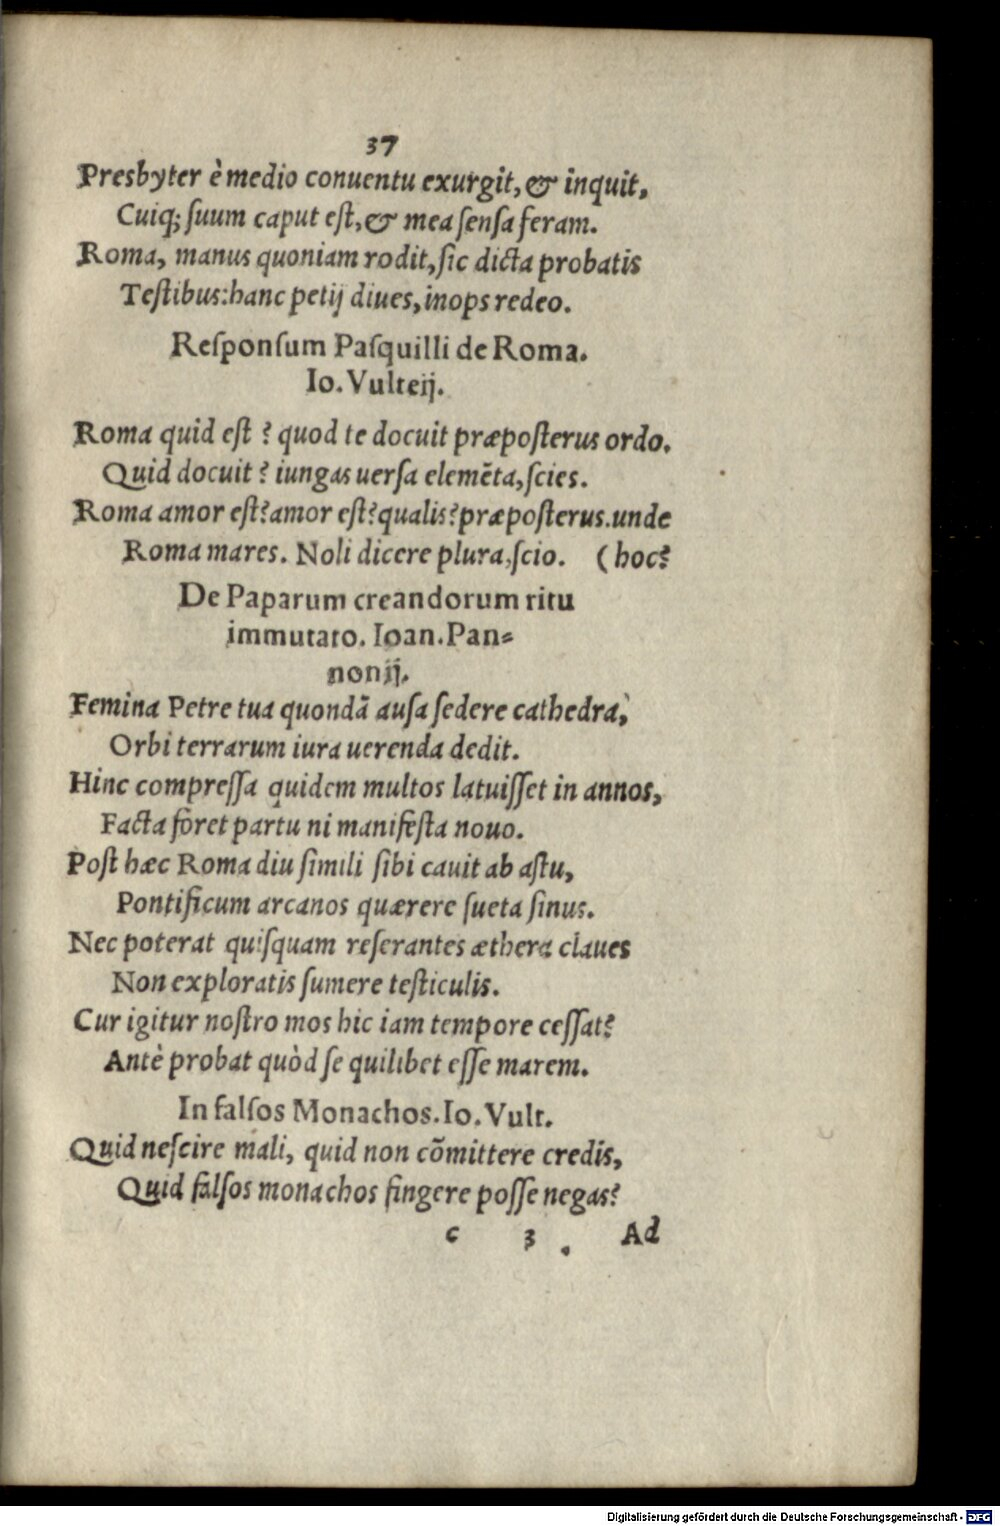 37
Presbyter è medio conuentu exurgit, & inquit,
Cuiq; ſuum caput eſt, & mea ſenſa feram.
Roma, manus quoniam rodit, ſic dicta probatis
Teſtibus: hanc petij diues, inops redeo.
Reſponſum Paſquilli de Roma.
Io. Vulteij.
Roma quid eſt? quod te docuit præpoſterus ordo.
Quid docuit? iungas uerſa elemẽta, ſcies.
Roma amor eſt? amor eſt? qualis? præpoſterus. unde
Roma mares. Noli dicere plura, ſcio. (hoc?
De Paparum creandorum ritu
immutato. Ioan. Pan-
nonij.
Femina Petre tua quondã auſa ſedere cathedra,
Orbi terrarum iura uerenda dedit.
Hinc compreſſa quidem multos latuiſſet in annos,
Facta foret partu ni manifeſta nouo.
Poſt hæc Roma diu ſimili ſibi cauit ab aſtu,
Pontificum arcanos quærere ſueta ſinus.
Nec poterat quiſquam reſerantes æthera claues
Non exploratis ſumere teſticulis.
Cur igitur noſtro mos hic iam tempore ceſſat?
Antè probat quòd ſe quilibet eſſe marem.
In falſos Monachos. Io. Vult.
Quid neſcire mali, quid non cõmittere credis,
Quid falſos monachos fingere poſſe negas?
c 3 Ad
Digitalisierung gefördert durch die Deutsche Forschungsgemeinschaft - DFG